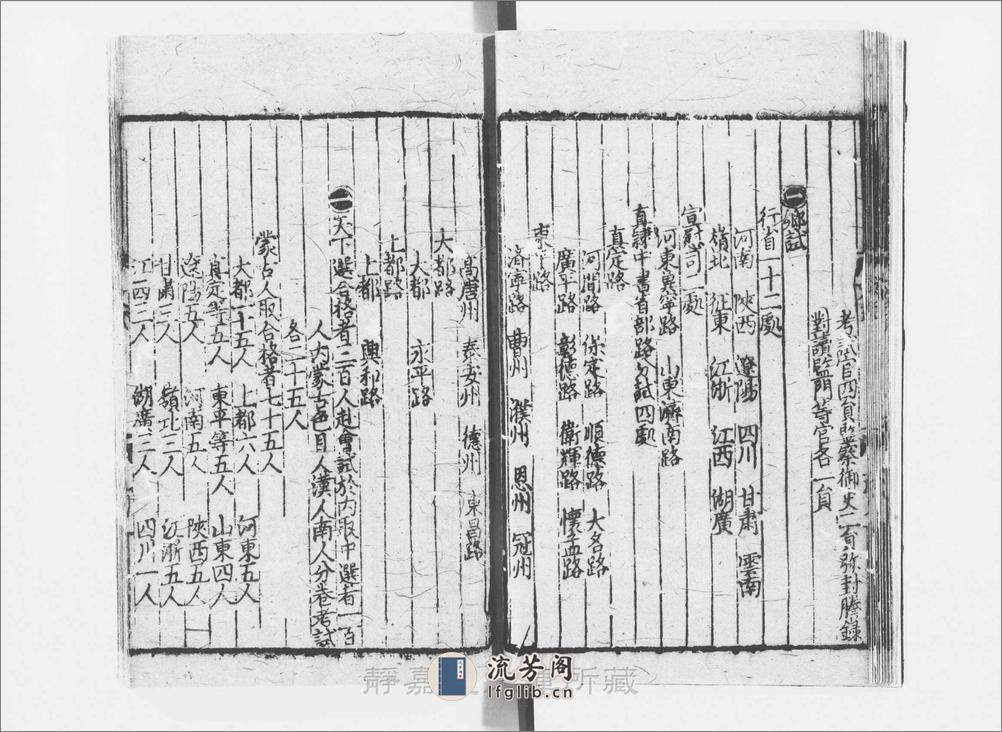 考試官四員監察御史二員弥封謄録
對讀監門等官各一員
一鄉試
行省一十二處
河南 陝西 遼陽 四川 甘肅 雲南
嶺北 征東 江浙 江西 湖廣
宣慰司二處
河東冀寧路 山東濟南路
直隸中書省部路分試四處
真定路
河間路 保定路 順德路 大名路
廣平路 彰德路 衛輝路 懷孟路
東平路
濟寧路 曹州 濮州 恩州 冠州
高唐州 泰安州 德州 東昌路
大都路
大都 永平路
上都路
上都 興和路
一天下選合格者三百人赴會試於内取中選者一百
人内蒙古色目人漢人南人分卷考試
各二十五人
蒙古人取合格者七十五人
大都十五人 上都六人 河東五人
真定等五人 東平等五人 山東四人
遼陽五人 河南五人 陝西五人
甘肅三人 嶺北三人 江浙五人
江西三人 湖廣三人 四川一人
流芳阁
lfglib.cn
靜嘉 所藏